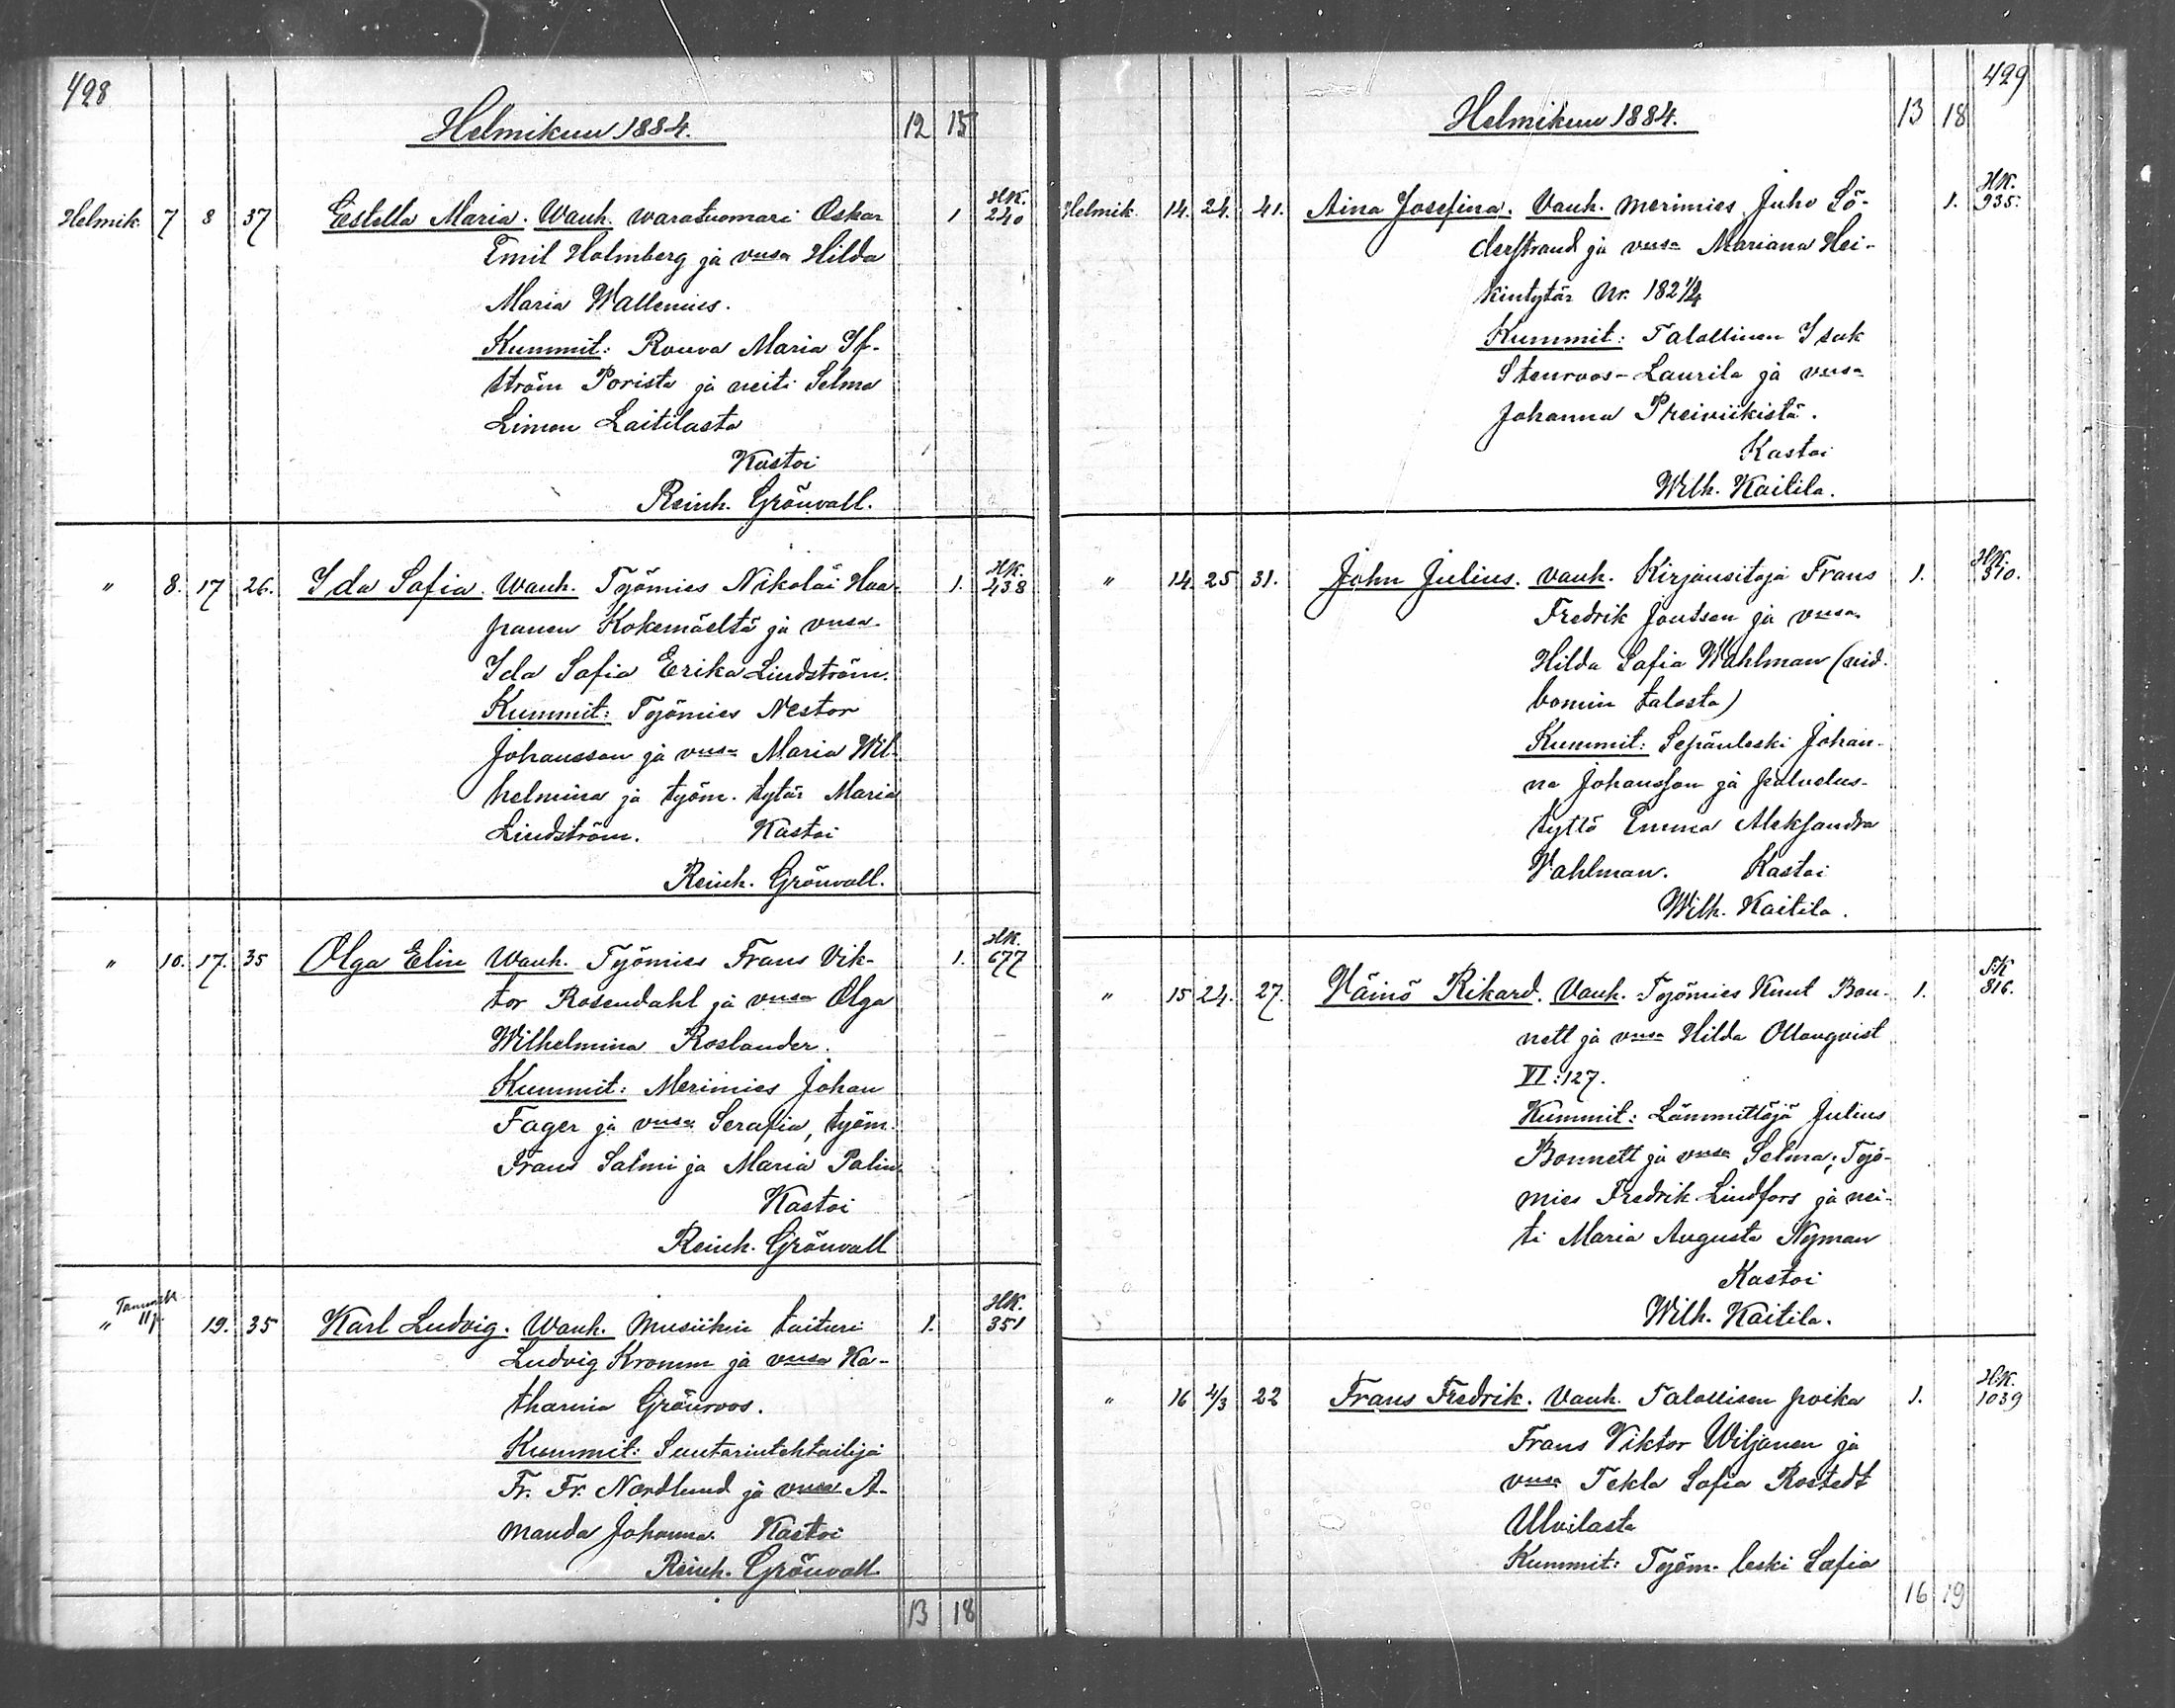 428
Helmikuu 1884. 12 15
Helmik. 7 8 37 Estella Maria. Wanh. waratuomari Oskar 1 HK. 240
Emil Holmberg ja vmsa Hilda
Maria Wallenius.
Kummit: Rouva Maria If-
ström Porista ja neiti Selma
Limon Laitilasta
Kastoi
Reinh. Grönvall.
" 8. 17 26. Ida Sofia. Wanh. Työmies Nikolai Haa- 1. HK. 438
panen Kokemäeltä ja vmsa
Ida Sofia Eerika Lindström.
Kummit: Työmies Nestor
Johansson ja vmsa Maria Wil-
helmina ja työm. tytär Maria
Lindström. Kastoi
Reinh. Grönvall.
" 10. 17. 35 Olga Elin Wanh. Työmies Frans Vik- 1. HK. 677
tor Rosendahl ja vmsa Olga
Wilhelmina Roslander.
Kummit: Merimies Johan
Fager ja vmsa Serafia, työm.
Frans Salmi ja Maria Palin.
Kastoi
Reinh. Grönvall
" 11 19. 35 Karl Ludvig. Wanh. Musiikin taituri 1. HK. 351
Ludvig Kromm ja vmsa Ka-
tharina Grönroos.
Kummit: Suutarintehtailija
Fr. Fr. Nordlund ja vmsa A-
manda Johanna. Kastoi
Reinh. Grönvall.
13 18
429
Helmikuu 1884. 13 18
Helmik. 14. 24. 41. Aina Josefina. Vanh. merimies Juho Sö- 1. HK. 935.
derstrand ja vmsa Mariana Hei-
kintytär Nr. 182 1/4
Kummit: Talollinen Isak
Stenroos-Laurila ja vmsa
Johanna Preiviikistä.
Kastoi
Wilh. Kaitila.
" 14. 25 31. John Julius. Vanh. Kirjansitoja Frans 1. HK. 310.
Fredrik Jontsen ja vmsa
Hilda Sofia Wahlman (wid-
bomin talosta)
Kummit: Sepänleski Johan-
na Johansson ja palvelus-
tyttö Emma Aleksandra
Wahlman. Kastoi
Wilh. Kaitila.
" 15 24. 27. Wäinö Rikard. Vanh. Työmies Knut Bon- 1. S.K 816.
nett ja vmsa Hilda Ollonqvist
VI:127.
Kummit: Lämmittäjä Julius
Bonnett ja vmsa Selma; Työ-
mies Fredrik Lindfors ja nei-
ti Maria Augusta Nyman
Kastoi
Wilh. Kaitila.
" 16 2/3 22 Frans Fredrik. Vanh. Talollisen poika 1. HK. 1039
Frans Viktor Wiljanen ja
vmsa Tekla Sofia Rostedt
Ulvilasta
Kummit: Työm. leski Sofia
16 19